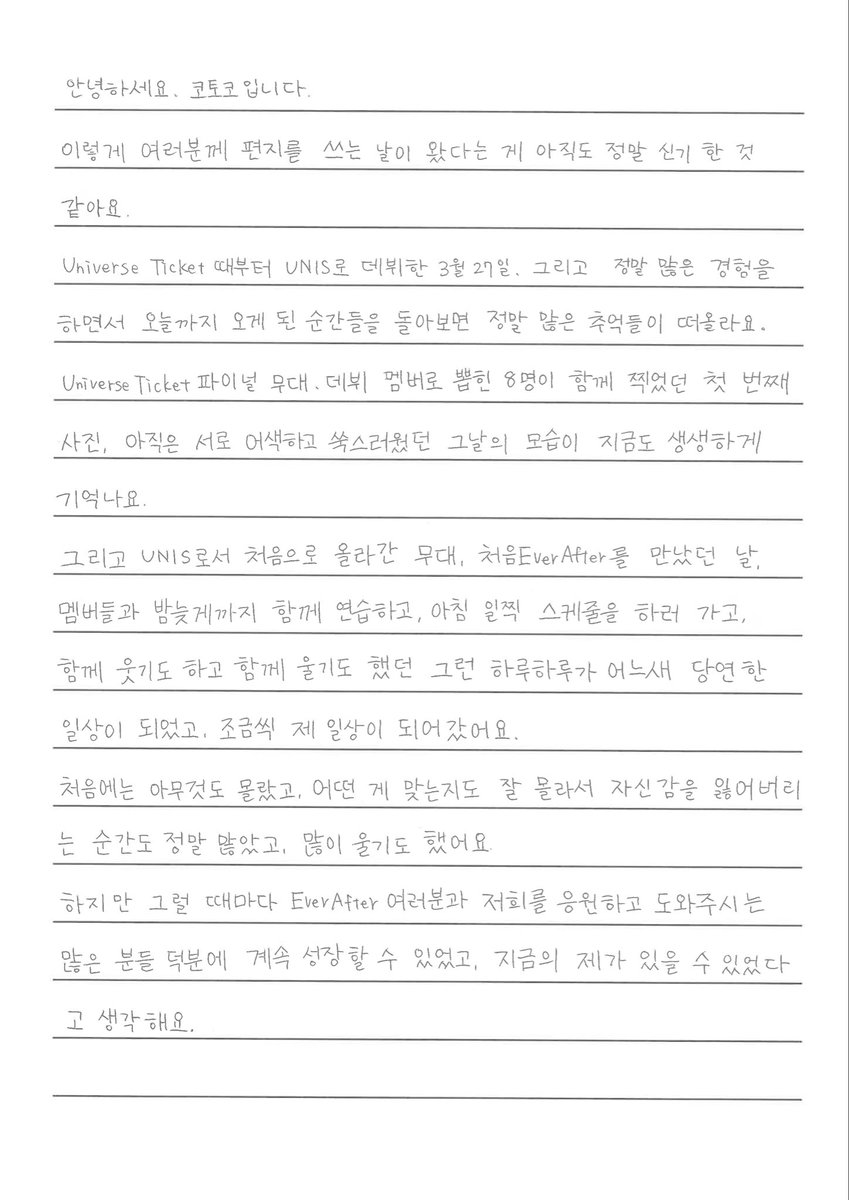 안녕하세요. 코토코입니다.
이렇게 여러분께 편지를 쓰는 날이 왔다는 게 아직도 정말 신기 한 것
같아요.
Universe Ticket 때부터 UNIS로 데뷔한 3월 27일. 그리고 정말 많은 경험을
하면서 오늘까지 오게 된 순간들을 돌아보면 정말 많은 추억들이 떠올라요.
Universe Ticket 파이널 무대. 데뷔 멤버로 뽑힌 8명이 함께 찍었던 첫 번째
사진, 아직은 서로 어색하고 쑥스러웠던 그날의 모습이 지금도 생생하게
기억나요.
그리고 UNIS로서 처음으로 올라간 무대, 처음EverAfter를 만났던 날,
멤버들과 밤늦게까지 함께 연습하고, 아침 일찍 스케줄을 하러 가고,
함께 웃기도 하고 함께 울기도 했던 그런 하루하루가 어느새 당연한
일상이 되었고, 조금씩 제 일상이 되어갔어요.
처음에는 아무것도 몰랐고, 어떤 게 맞는지도 잘 몰라서 자신감을 잃어버리
는 순간도 정말 많았고, 많이 울기도 했어요.
하지만 그럴 때마다 EverAfter 여러분과 저희를 응원하고 도와주시는
많은 분들 덕분에 계속 성장할 수 있었고, 지금의 제가 있을 수 있었다
고 생각해요.